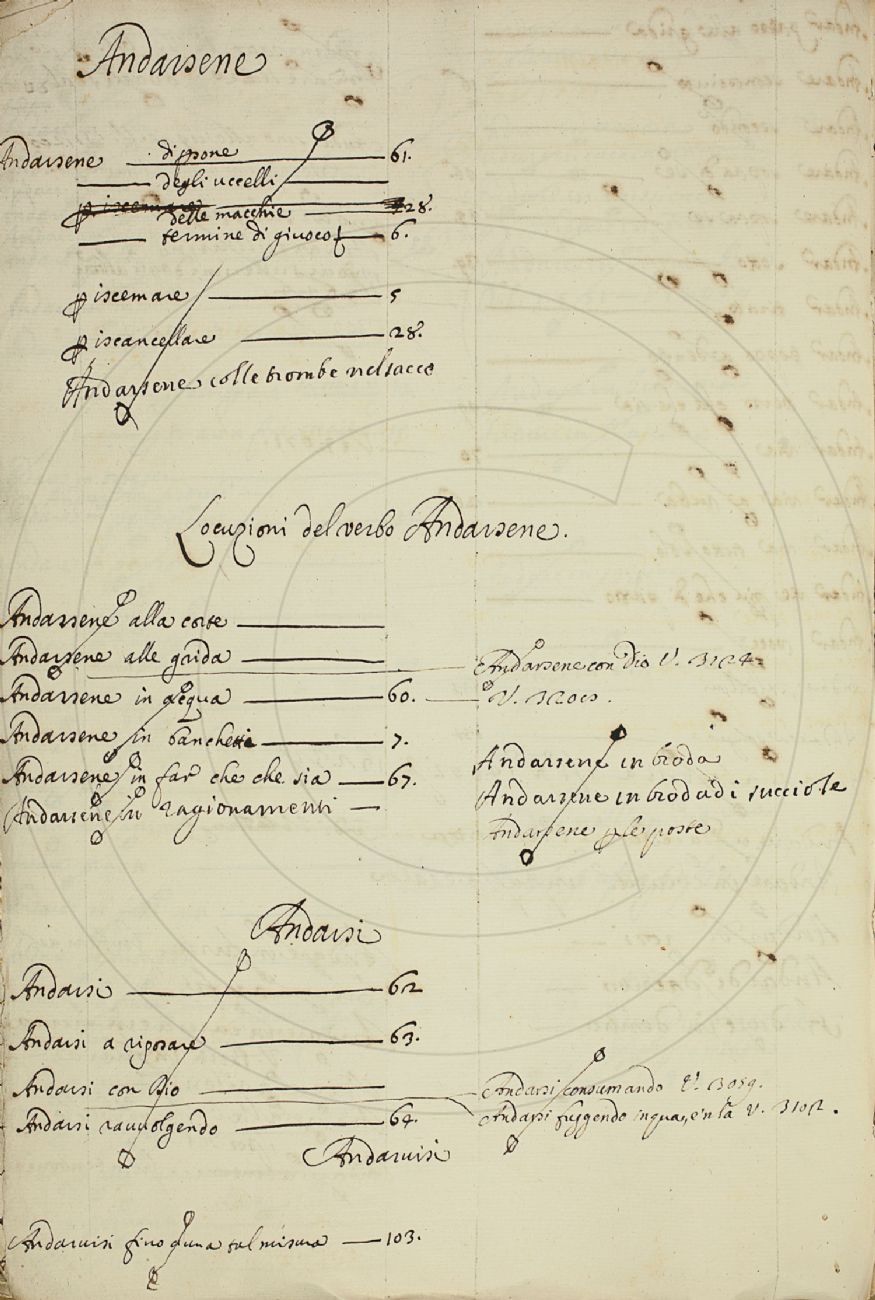 Andarsene
Andarsene di psone 61.
degli uccelli
delle macchie 28.
termine di giuoco 6.
p iscemare 5
p iscancellare 28.
Andarsene colle trombe nel sacco
Locuzioni del verbo Andarsene.
Andarsene alla corte
Andarsene alle grida
Andarsene con Dio V. 3124
Andarsene in acqua 60.
V. 3200
Andarsene in banchetti 7.
Andarsene in broda
Andarsene in far che che sia 67.
Andarsene in broda di succiole
Andarsene in ragionamenti
Andarsene p le poste
Andarsi
Andarsi 62
Andarsi a riposare 63.
Andarsi con Dio
Andarsi consumando V. 3059.
Andarsi ravvolgendo 64.
Andarsi fuggendo in qua, e 'n là V. 3102.
Andarvisi
Andarvisi fino q una tal misura 103.